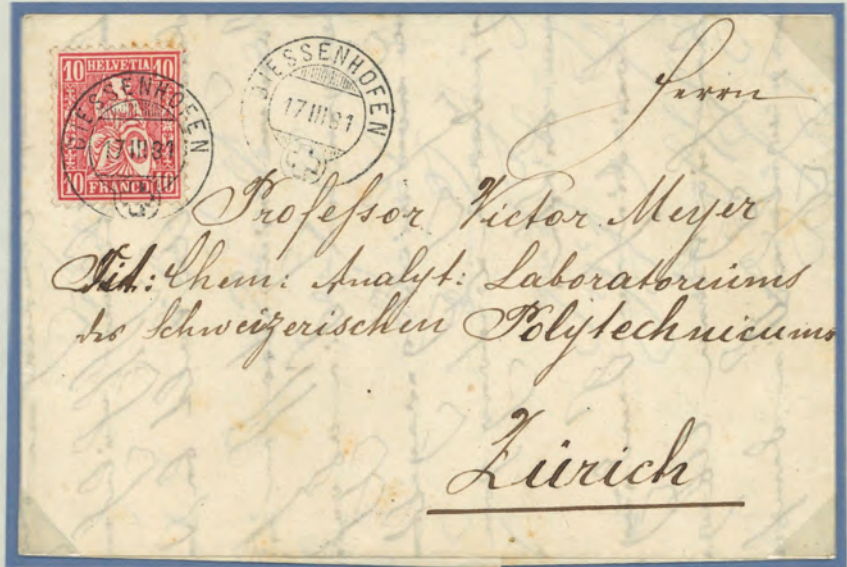 10 HELVETIA 10
10 FRANCO 10
DIESSENHOFEN
17 III 81
DIESSENHOFEN
17 III 81
Herrn
Professor Victor Meyer
Tit: Chem: Analyt: Laboratoriums
des Schweizerischen Polytechnicums
Zürich